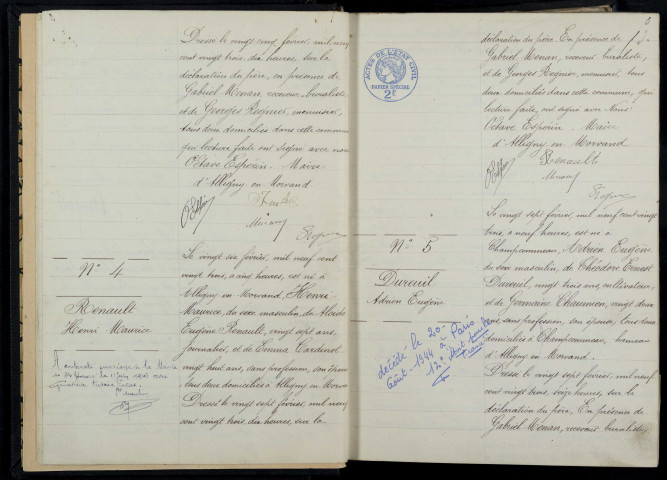 Dressé le vingt cinq février, mil neuf
cent vingt trois, dix heures, sur la
déclaration du père, en présence de
Gabriel Menan, receveur buraliste,
et de Georges Regnier, menuisier,
tous deux domiciliés dans cette commune
qui lecture faite ont signé avec nous
Octave Maire
d'Alligny en Morvand
N° 4
Renault
Henri Maurice
Le vingt six février, mil neuf cent
vingt trois, à cinq heures, est né à
Alligny en Morvand, Henri
Maurice, du sexe masculin, de
Eugène Renault, vingt sept ans,
journalier, et de Emma Cardinot
vingt huit ans, sans profession, son épouse
tous deux domiciliés à Alligny en Morvand
Dressé le vingt sept février, mil neuf
cent vingt trois, dix heures, sur la
ACTES DE L'ÉTAT CIVIL
PAPIER SPÉCIAL
2F
déclaration du père. En présence de
Gabriel Menan, receveur buraliste,
et de Georges Regnier, menuisier, tous
deux domiciliés dans cette commune, qui
lecture faite, ont signé avec Nous
Octave Maire
d'Alligny en Morvand
Renault
N° 5
Dureuil
Adrien Eugène
décédé le 20
Août 1944 à Paris
12e
Le vingt sept février, mil neuf cent vingt
trois, à neuf heures, est né à
Champcommeau, Adrien Eugène
du sexe masculin, de Théodore Ernest
Dureuil, vingt trois ans, cultivateur,
et de Germaine Chaumien, vingt deux
ans, sans profession, son épouse, tous deux
domiciliés à Champcommeau, hameau
d'Alligny en Morvand.
Dressé le vingt sept février, mil neuf
cent vingt trois, seize heures, sur la
déclaration du père, En présence de
Gabriel Menan, receveur buraliste,